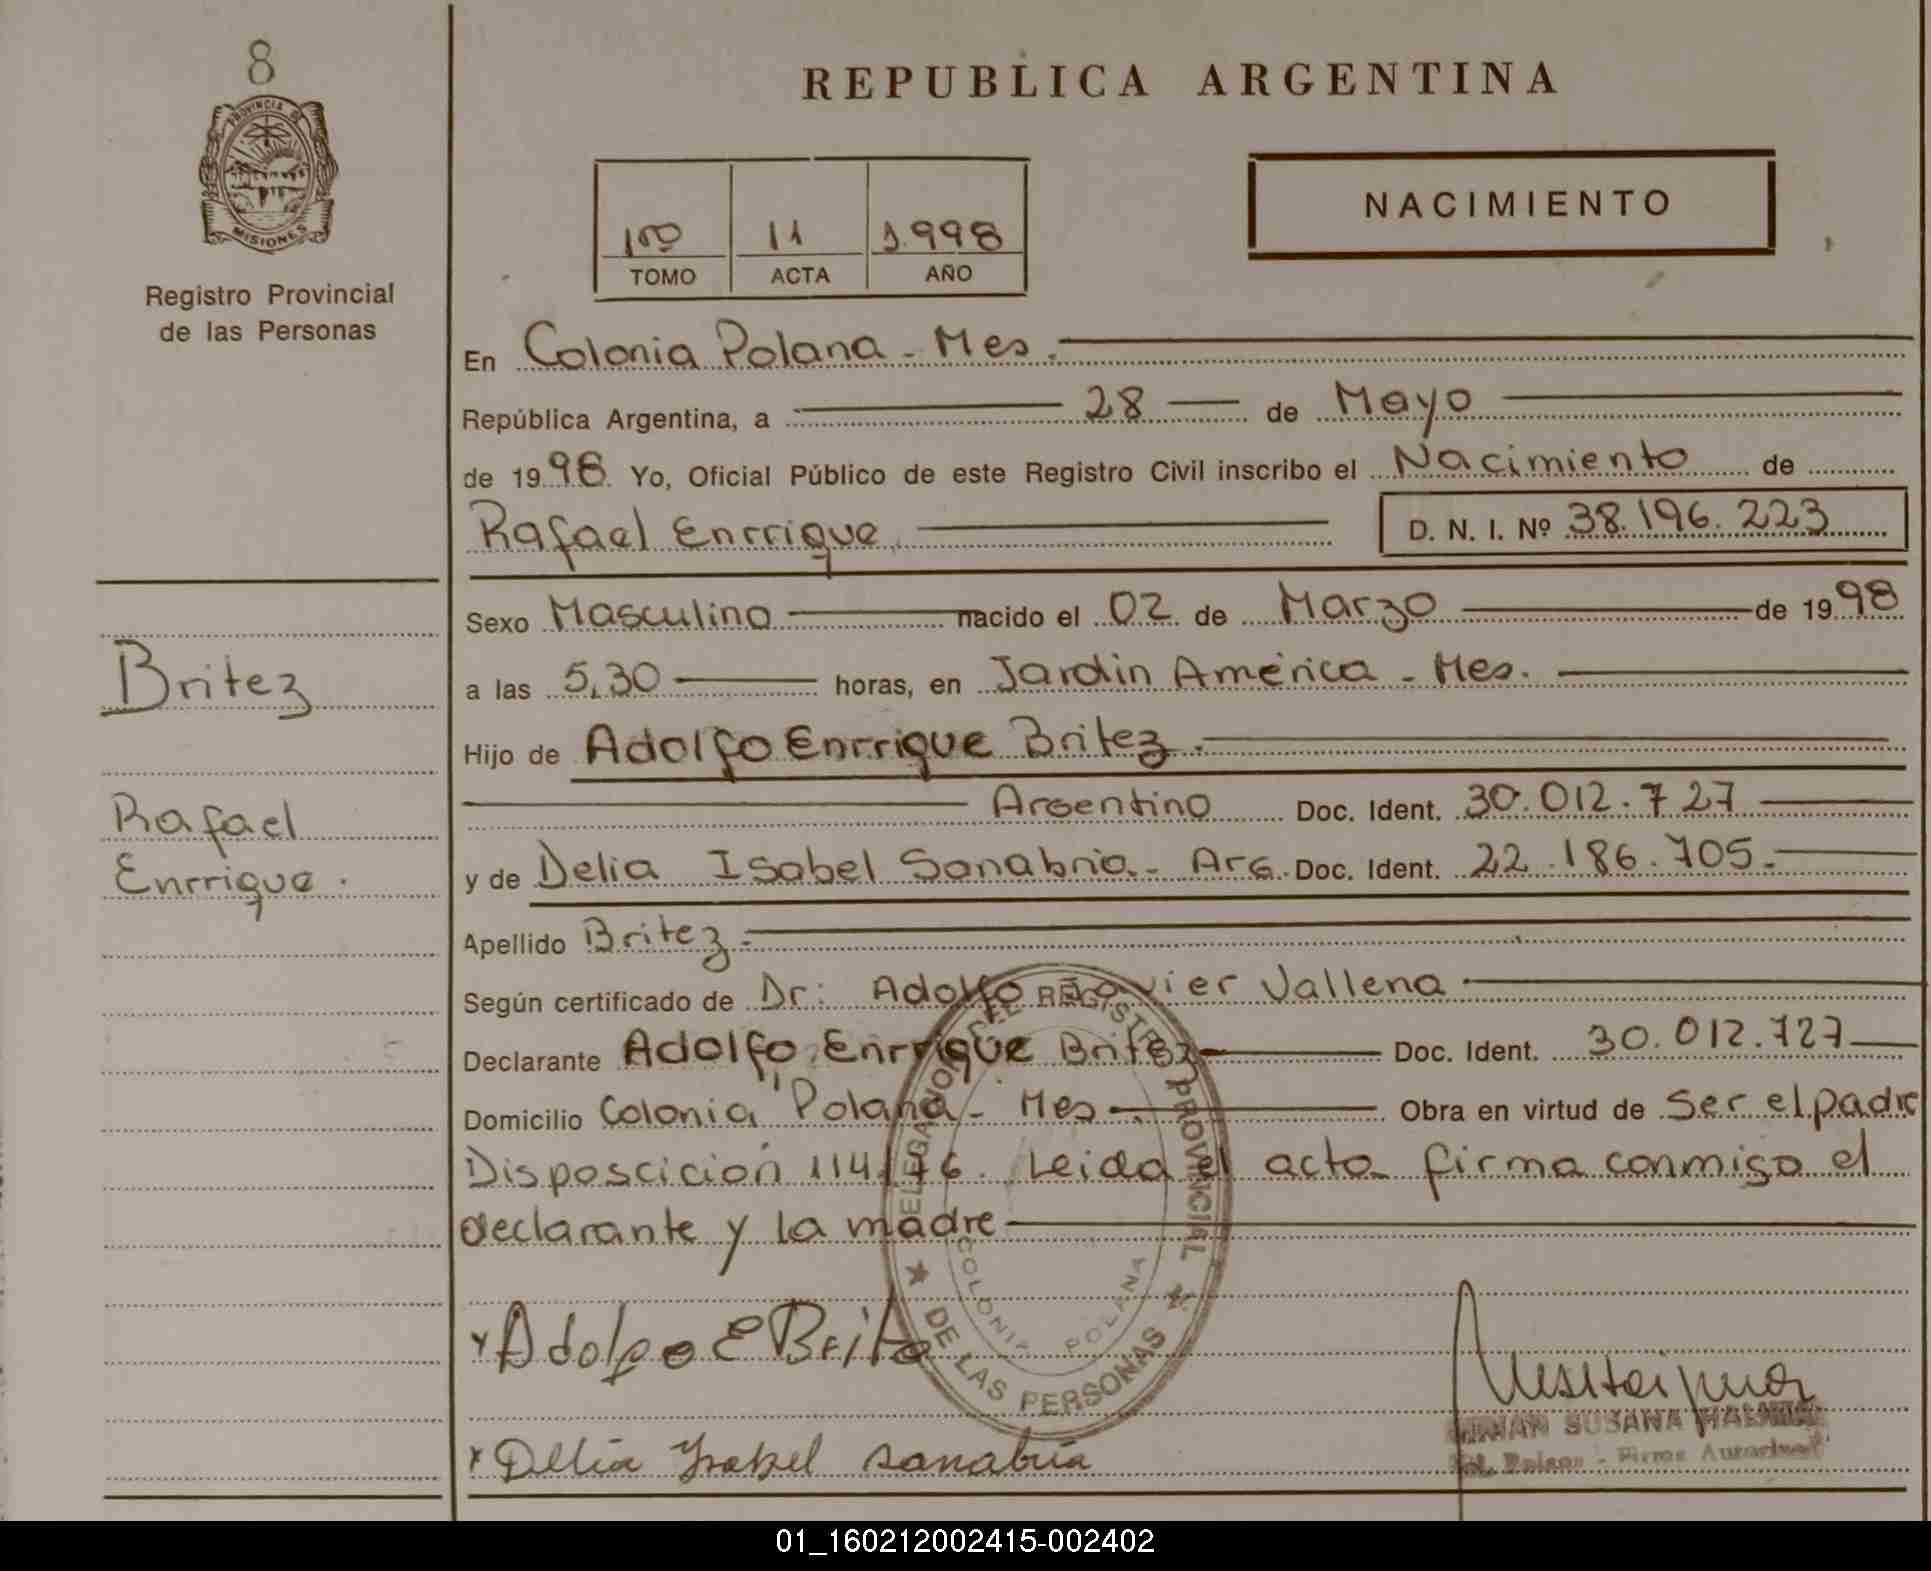 8
PROVINCIA DE
MISIONES
Registro Provincial
de las Personas
Britez
Rafael
Enrrique.
REPUBLICA ARGENTINA
NACIMIENTO
1º 11 1.998
TOMO ACTA AÑO
En Colonia Polana - Mes.
República Argentina, a 28 de Mayo
de 1998 Yo, Oficial Público de este Registro Civil inscribo el Nacimiento de
Rafael Enrrique. D. N. I. Nº 38.196.223
Sexo Masculino nacido el 02 de Marzo de 1998
a las 5,30 horas, en Jardin América - Mes.
Hijo de Adolfo Enrrique Britez.
Argentino Doc. Ident. 30.012.727
y de Delia Isabel Sanabria - Arg. Doc. Ident. 22.186.705.
Apellido Britez.
Según certificado de Dr: Adolfo Javier Vallena
Declarante Adolfo Enrrique Britez Doc. Ident. 30.012.727
Domicilio Colonia Polana - Mes. Obra en virtud de Ser el padre
Disposcición 114/76. Leida el acta firma conmigo el
declarante y la madre
DEL REGISTRO PROVINCIAL
★ DE LAS PERSONAS ★
COLONIA POLANA
x Adolfo E Brito
x Delia Ysabel sanabria
SUSANA
Firma
01_160212002415-002402